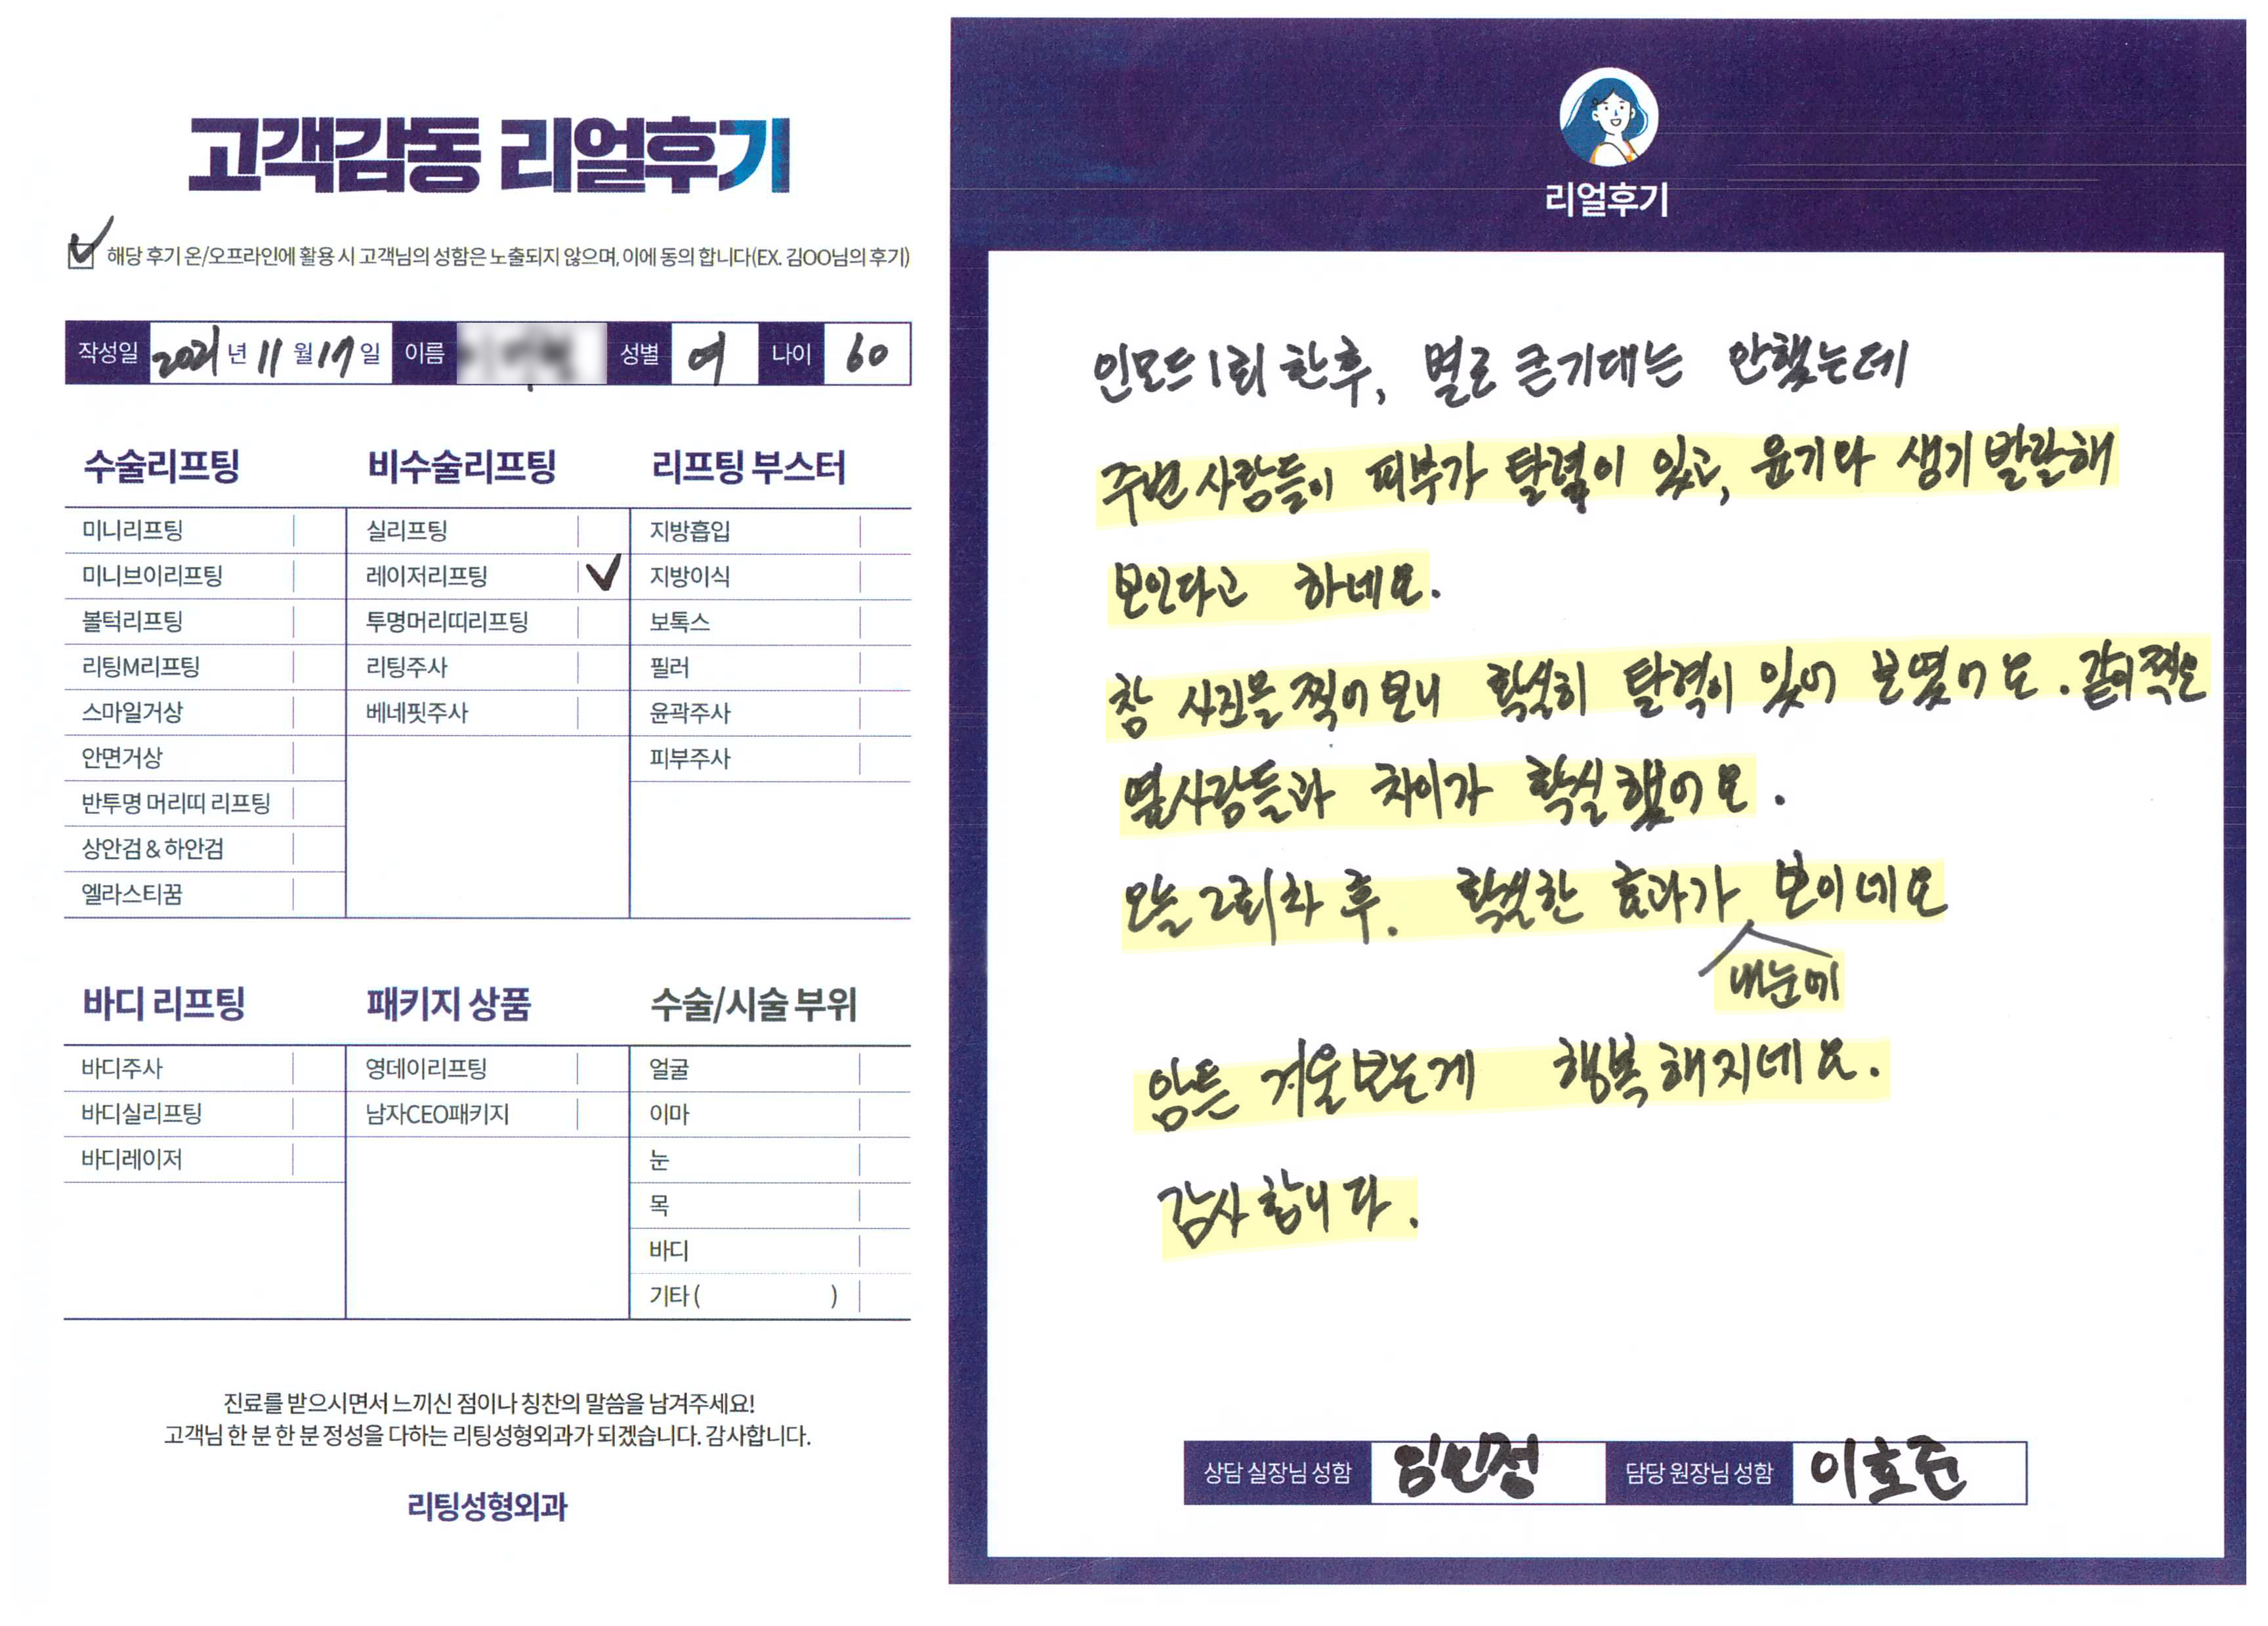 고객감동 리얼후기
해당 후기 온/오프라인에 활용 시 고객님의 성함은 노출되지 않으며, 이에 동의 합니다(EX. 김OO님의 후기)
작성일 2021년 11월 17일 이름 성별 여 나이 60
수술리프팅
미니리프팅
미니브이리프팅
볼턱리프팅
리팅M리프팅
스마일거상
안면거상
반투명 머리띠 리프팅
상안검 & 하안검
엘라스티꿈
비수술리프팅
실리프팅
레이저리프팅
투명머리띠리프팅
리팅주사
베네핏주사
리프팅 부스터
지방흡입
지방이식
보톡스
필러
윤곽주사
피부주사
바디 리프팅
바디주사
바디실리프팅
바디레이저
패키지 상품
영데이리프팅
남자CEO패키지
수술/시술 부위
얼굴
이마
눈
목
바디
기타 ( )
진료를 받으시면서 느끼신 점이나 칭찬의 말씀을 남겨주세요!
고객님 한 분 한 분 정성을 다하는 리팅성형외과가 되겠습니다. 감사합니다.
리팅성형외과
리얼후기
인모드 1회 한후, 별로 큰기대는 안했는데
주변 사람들이 피부가 탈력이 있고, 윤기와 생기발랄해
보인다고 하네요.
참 사진을 찍어보니 확실히 탈력이 있어 보였어요. 같이 찍은
옆사람들과 차이가 확실했어요.
오늘 2회차 후. 확실한 효과가 보이네요
내눈에
암튼 거울보는게 행복해지네요.
감사합니다.
상담 실장님 성함
담당 원장님 성함 이호준